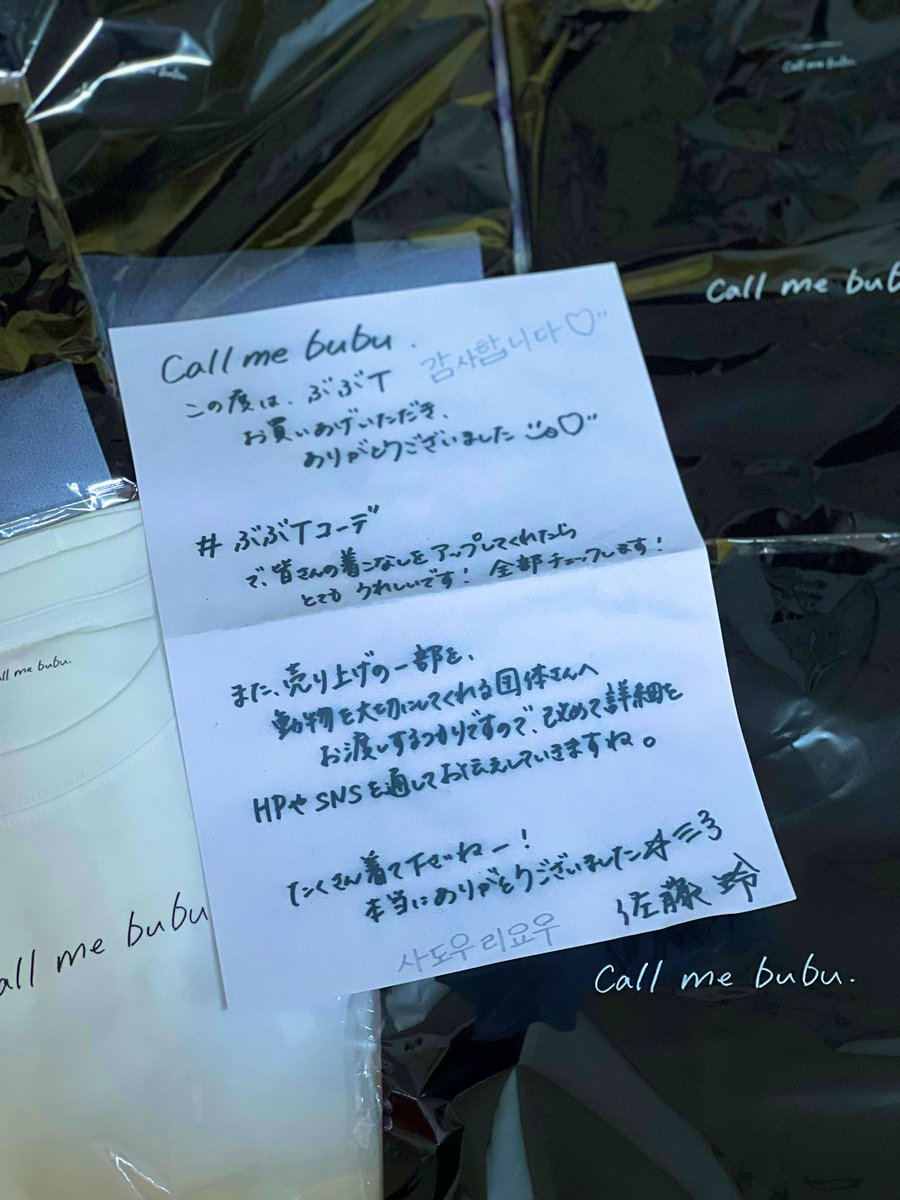 Call me bubu.
Call me bubu.
Call me bubu.
감사합니다♡"
この度は、ぶぶT
お買いあげいただき、
ありがとうございました♡"
#ぶぶTコーデ
で、皆さんの着こなしをアップしてくれたら
とてもうれしいです！全部チェックします！
また、売り上げの一部を、
動物を大切にしてくれる団体さんへ
お渡しするつもりですので、改めて詳細を
HPやSNSを通してお伝えしていきますね。
たくさん着て下さいねー！
本当にありがとうございました
佐藤 玲
사도우 리요우
call me bubu.
Call me bubu
Call me bubu.